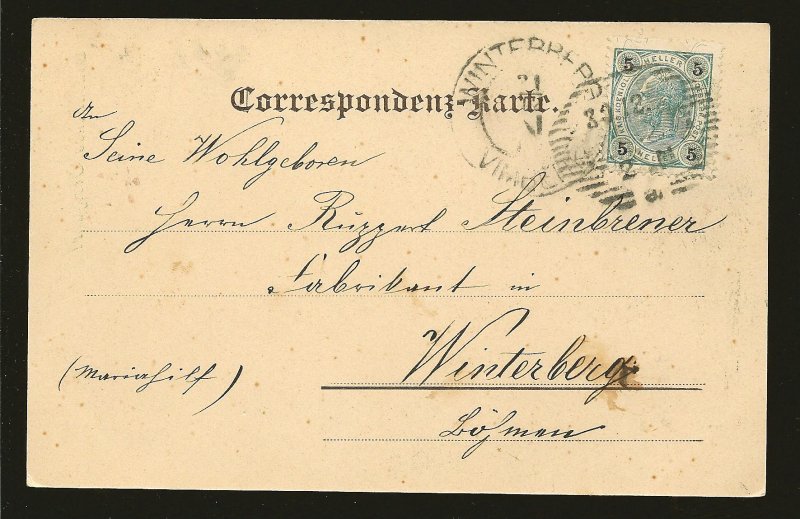 Correspondenz-Karte.
An
Seine Wohlgeboren
Herrn Ruppert Steinbrener
Fabrikant in
Winterberg
(Mariahilf)
Böhmen
WINTERBERG
5 HELLER 5
5 5